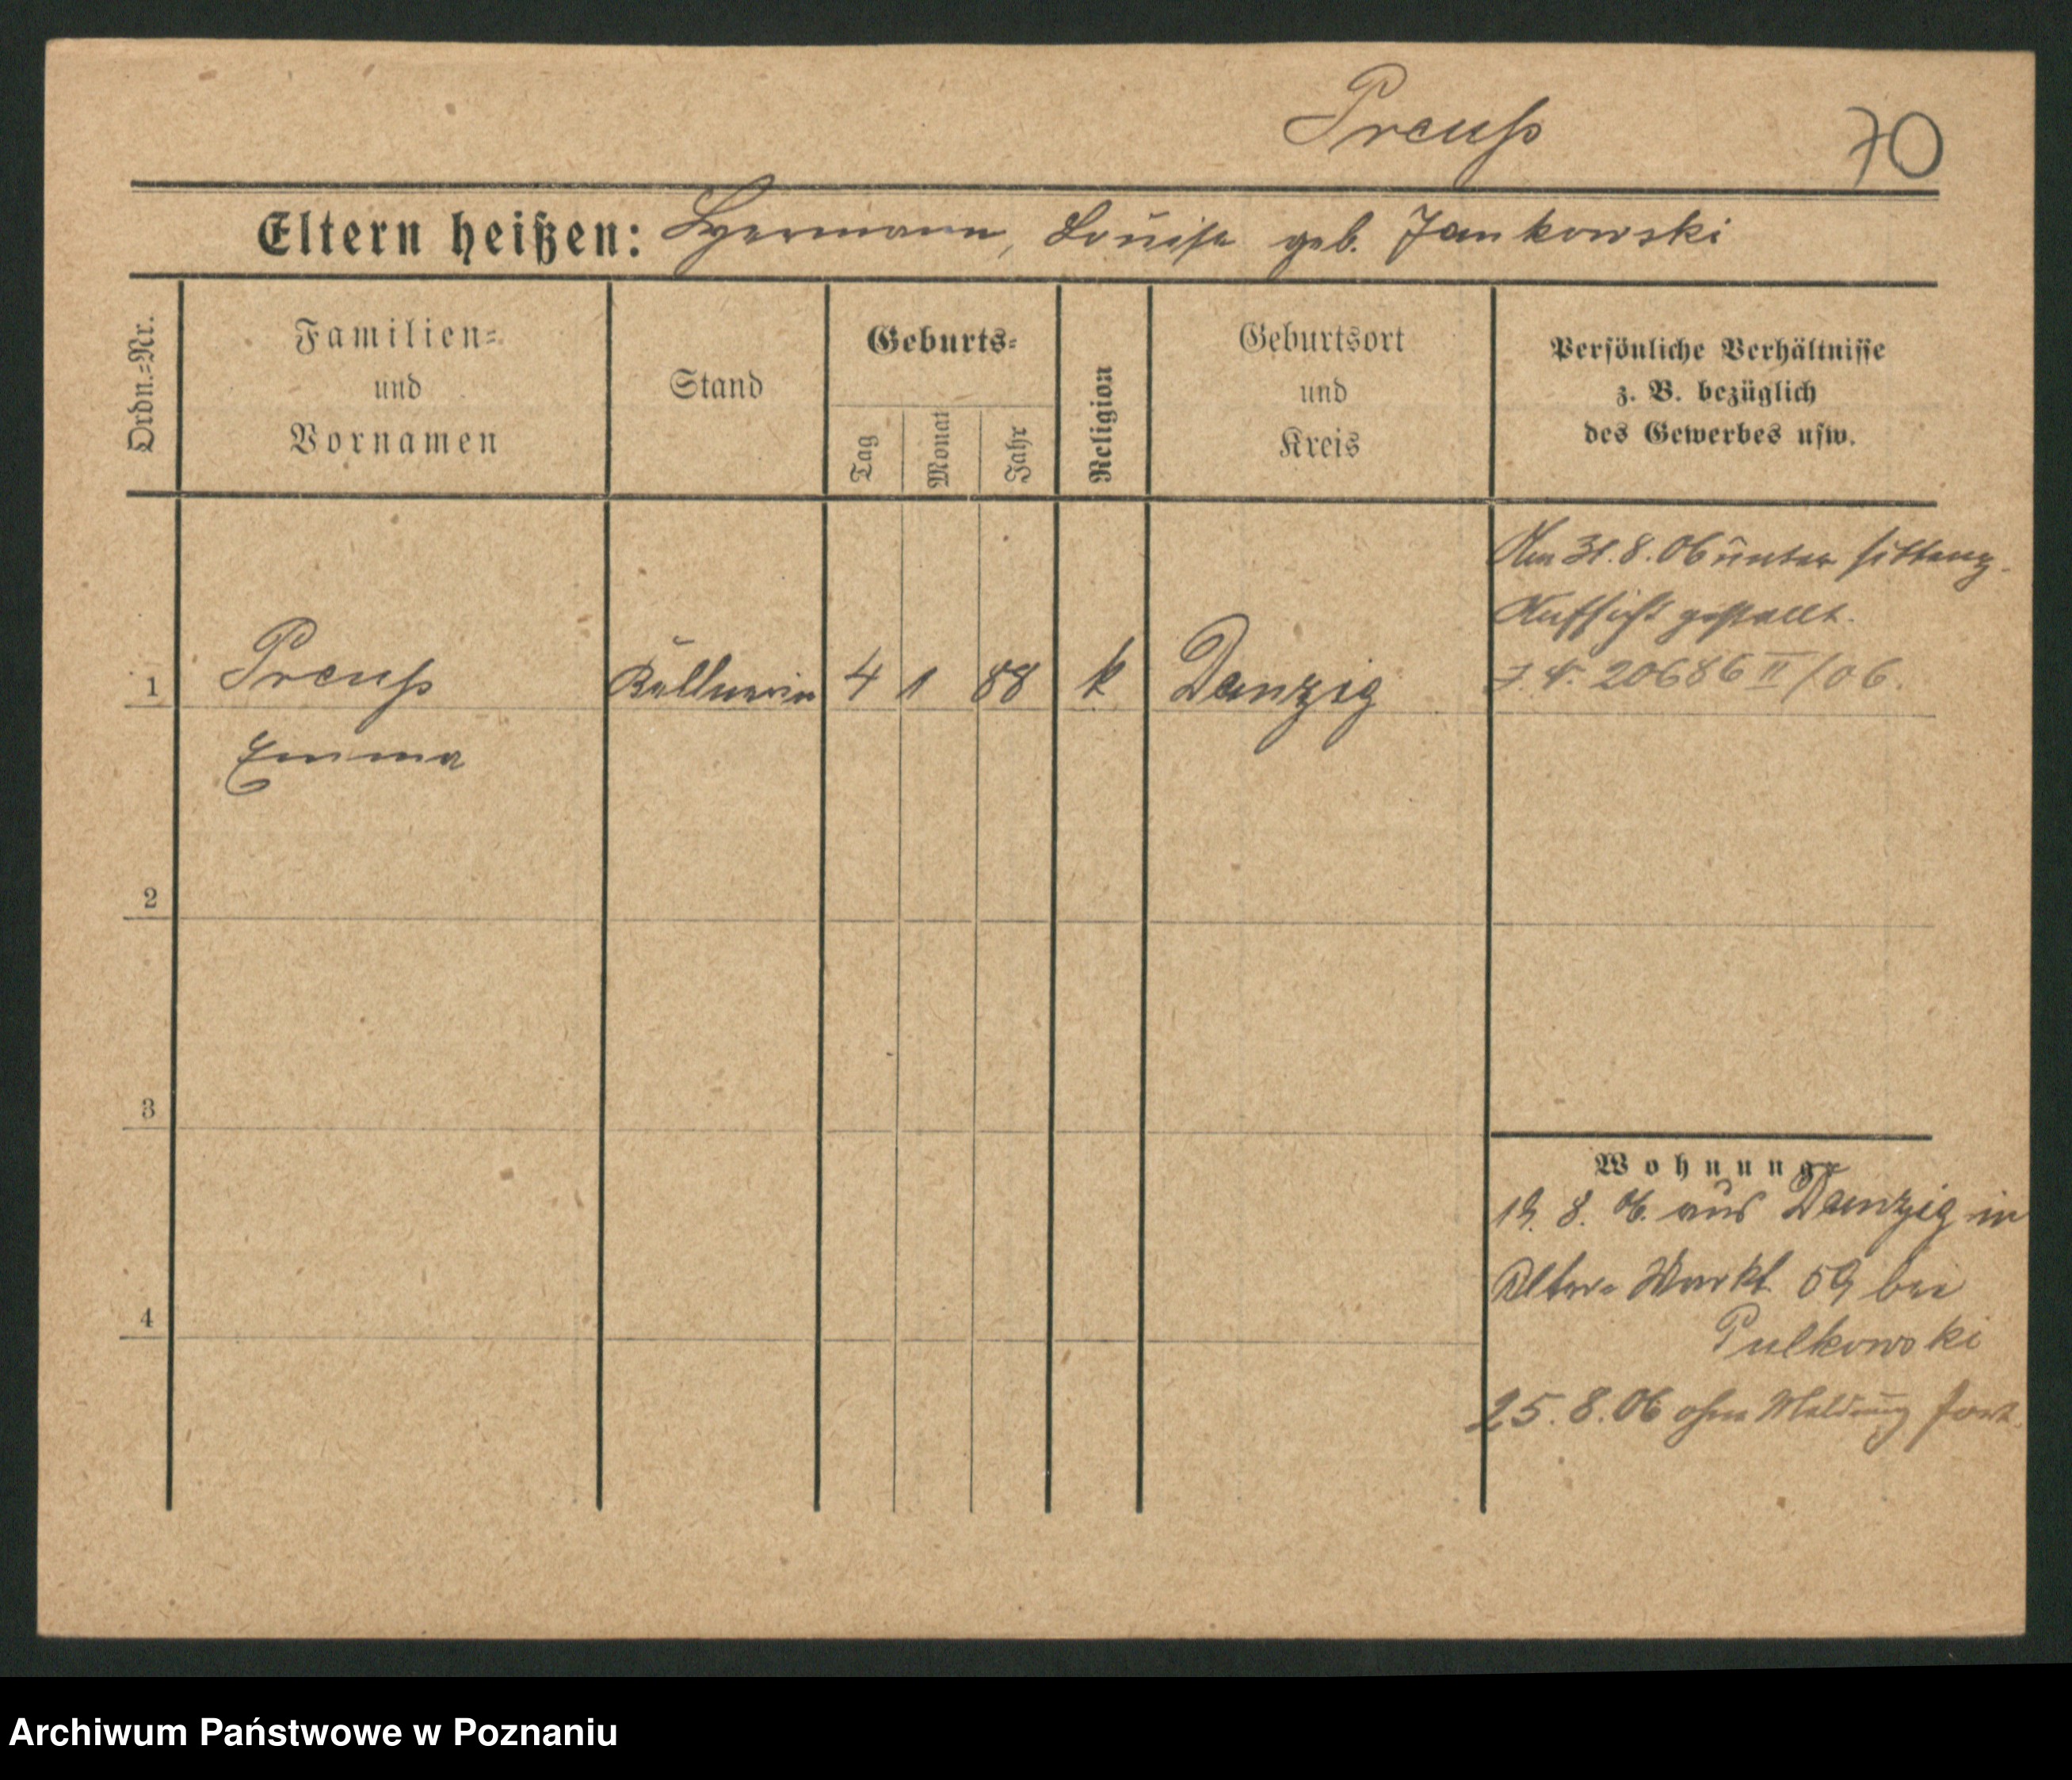 Preuß
70
Eltern heißen: Hermann, Louise geb. Jankowski
Ordn.=Nr.
Familien=
und
Vornamen
Stand
Geburts=
Tag
Monat
Jahr
Religion
Geburtsort
und
Kreis
Persönliche Verhältnisse
z. B. bezüglich
des Gewerbes usw.
Am 31.8.06 unter sittenp.
Aufsicht gestellt.
20686 II/06.
1 Preuß Kellnerin 4 1 88 k Danzig
Emma
2
3
4
Wohnung
19. 8. 06. aus Danzig in
Alter Markt 59 bei
Pulkowski
25.8.06 ohne Meldung fort.
Archiwum Państwowe w Poznaniu